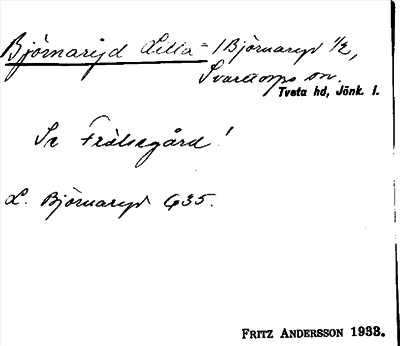 Björnaryd Lilla = 1 Björnaryd 1/2,
Svarttorps sn.
Tveta hd, Jönk. l.
Se Frälsegård!
L. Björnaryd G35.
FRITZ ANDERSSON 1933.